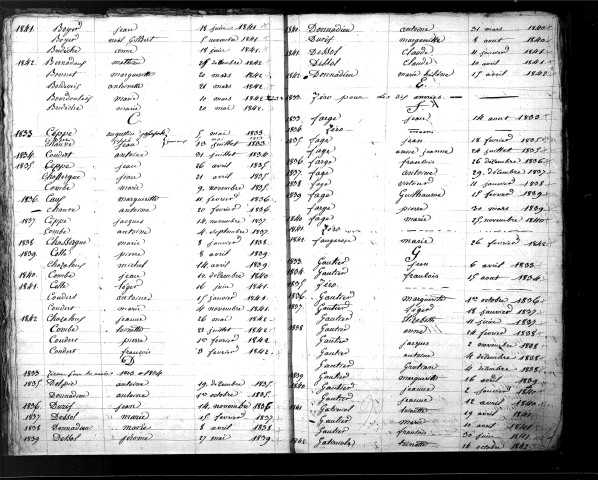 1841. Boyer jean 18 juin 1841.
Boyer noel Gilbert 5 novembre 1841.
Bredèche anne 18 juin 1841.
1842. Bernadeux 25 décembre 1842.
Bonnet marguerite 20 mars 1842.
antoinette 21 mars 1842.
marie 10 mars 1842.
Bredèche marie 20 mai 1842.
C
1833 Ceppe augustin 5 mai 1833
Chauve 13 juillet 1833
1834. Coudert antoine 31 juillet 1834.
1835. Ceppe jean 26 avril 1835.
Chassergue jean 21 avril 1835.
Combe marie 9 novembre 1835.
1836. marguerite 11 février 1836.
Chauve antoine 20 février 1836.
1837 Ceppe jacques 14 novembre 1837.
Combe antoine 4 septembre 1837.
1838 Chassergue marie 8 janvier 1838.
1839. Colle pierre 8 avril 1839.
michel 14 avril 1839.
1840. Combe jean 10 décembre 1840
1841. Colle léger 16 juin 1841.
Couders antoine 15 janvier 1841.
Couders marie 4 novembre 1841.
1842 jeanne 26 mai 1842.
Combe 23 juillet 1842.
Couders pierre 1er février 1842.
Couders françois 3 février 1842.
D
1833 1833 et 1834
1835. antoine 19 décembre 1835.
Donnadieu antoine 1er octobre 1835.
1836 jean 14 novembre 1836
1837 Dessol marie 15 février 1837.
1838 Donnadieu marie 8 avril 1838.
1839 Dessol jérome 27 mai 1839.
1840. Donnadieu antoine 31 mars 1840.
marguerite 8 aout 1840.
1841. Dessol Claude 11 janvier 1841.
Claude 10 avril 1841.
1842. Donnadieu marie 15 avril 1842.
E.
1833. Zéro pour des dix années.
F
1833 farge jean 14 aout 1833.
1834 Zéro
1835 fage jean 18 février 1835.
fage anne jeanne 24 juillet 1835.
1836 fage françois 26 décembre 1836.
1837 fage antoine 29 décembre 1837.
1838 fage 11 janvier 1838.
1839 fage Guillaume 15 février 1839.
fage pierre 20 mars 1839.
1840 fage marie 25 novembre 1840.
1841. Zéro
1842. faugerose marie 26 février 1842.
G
1833. Gautier jean 6 avril 1833.
1834 Gautier françois 15 aout 1834.
1835 Zéro
1836. Gautier marguerite 1er octobre 1836.
1837. Gautier léger 18 janvier 1837.
Gautier Elizabeth 11 juin 1837.
1838 Gautier anne 24 février 1838.
Gautier jacques 2 novembre 1838.
Gautier antoine 4 décembre 1838.
Gautier 4 décembre 1838.
1839 Gautier marguerite 16 avril 1839.
1840 Gautier jeanne 2 janvier 1840.
Gautier jeanne 12 avril 1840.
1841 19 avril 1841.
Gautier marie 10 avril 1841.
Gautier françois 30 juin 1841.
1842. 16 octobre 1842.